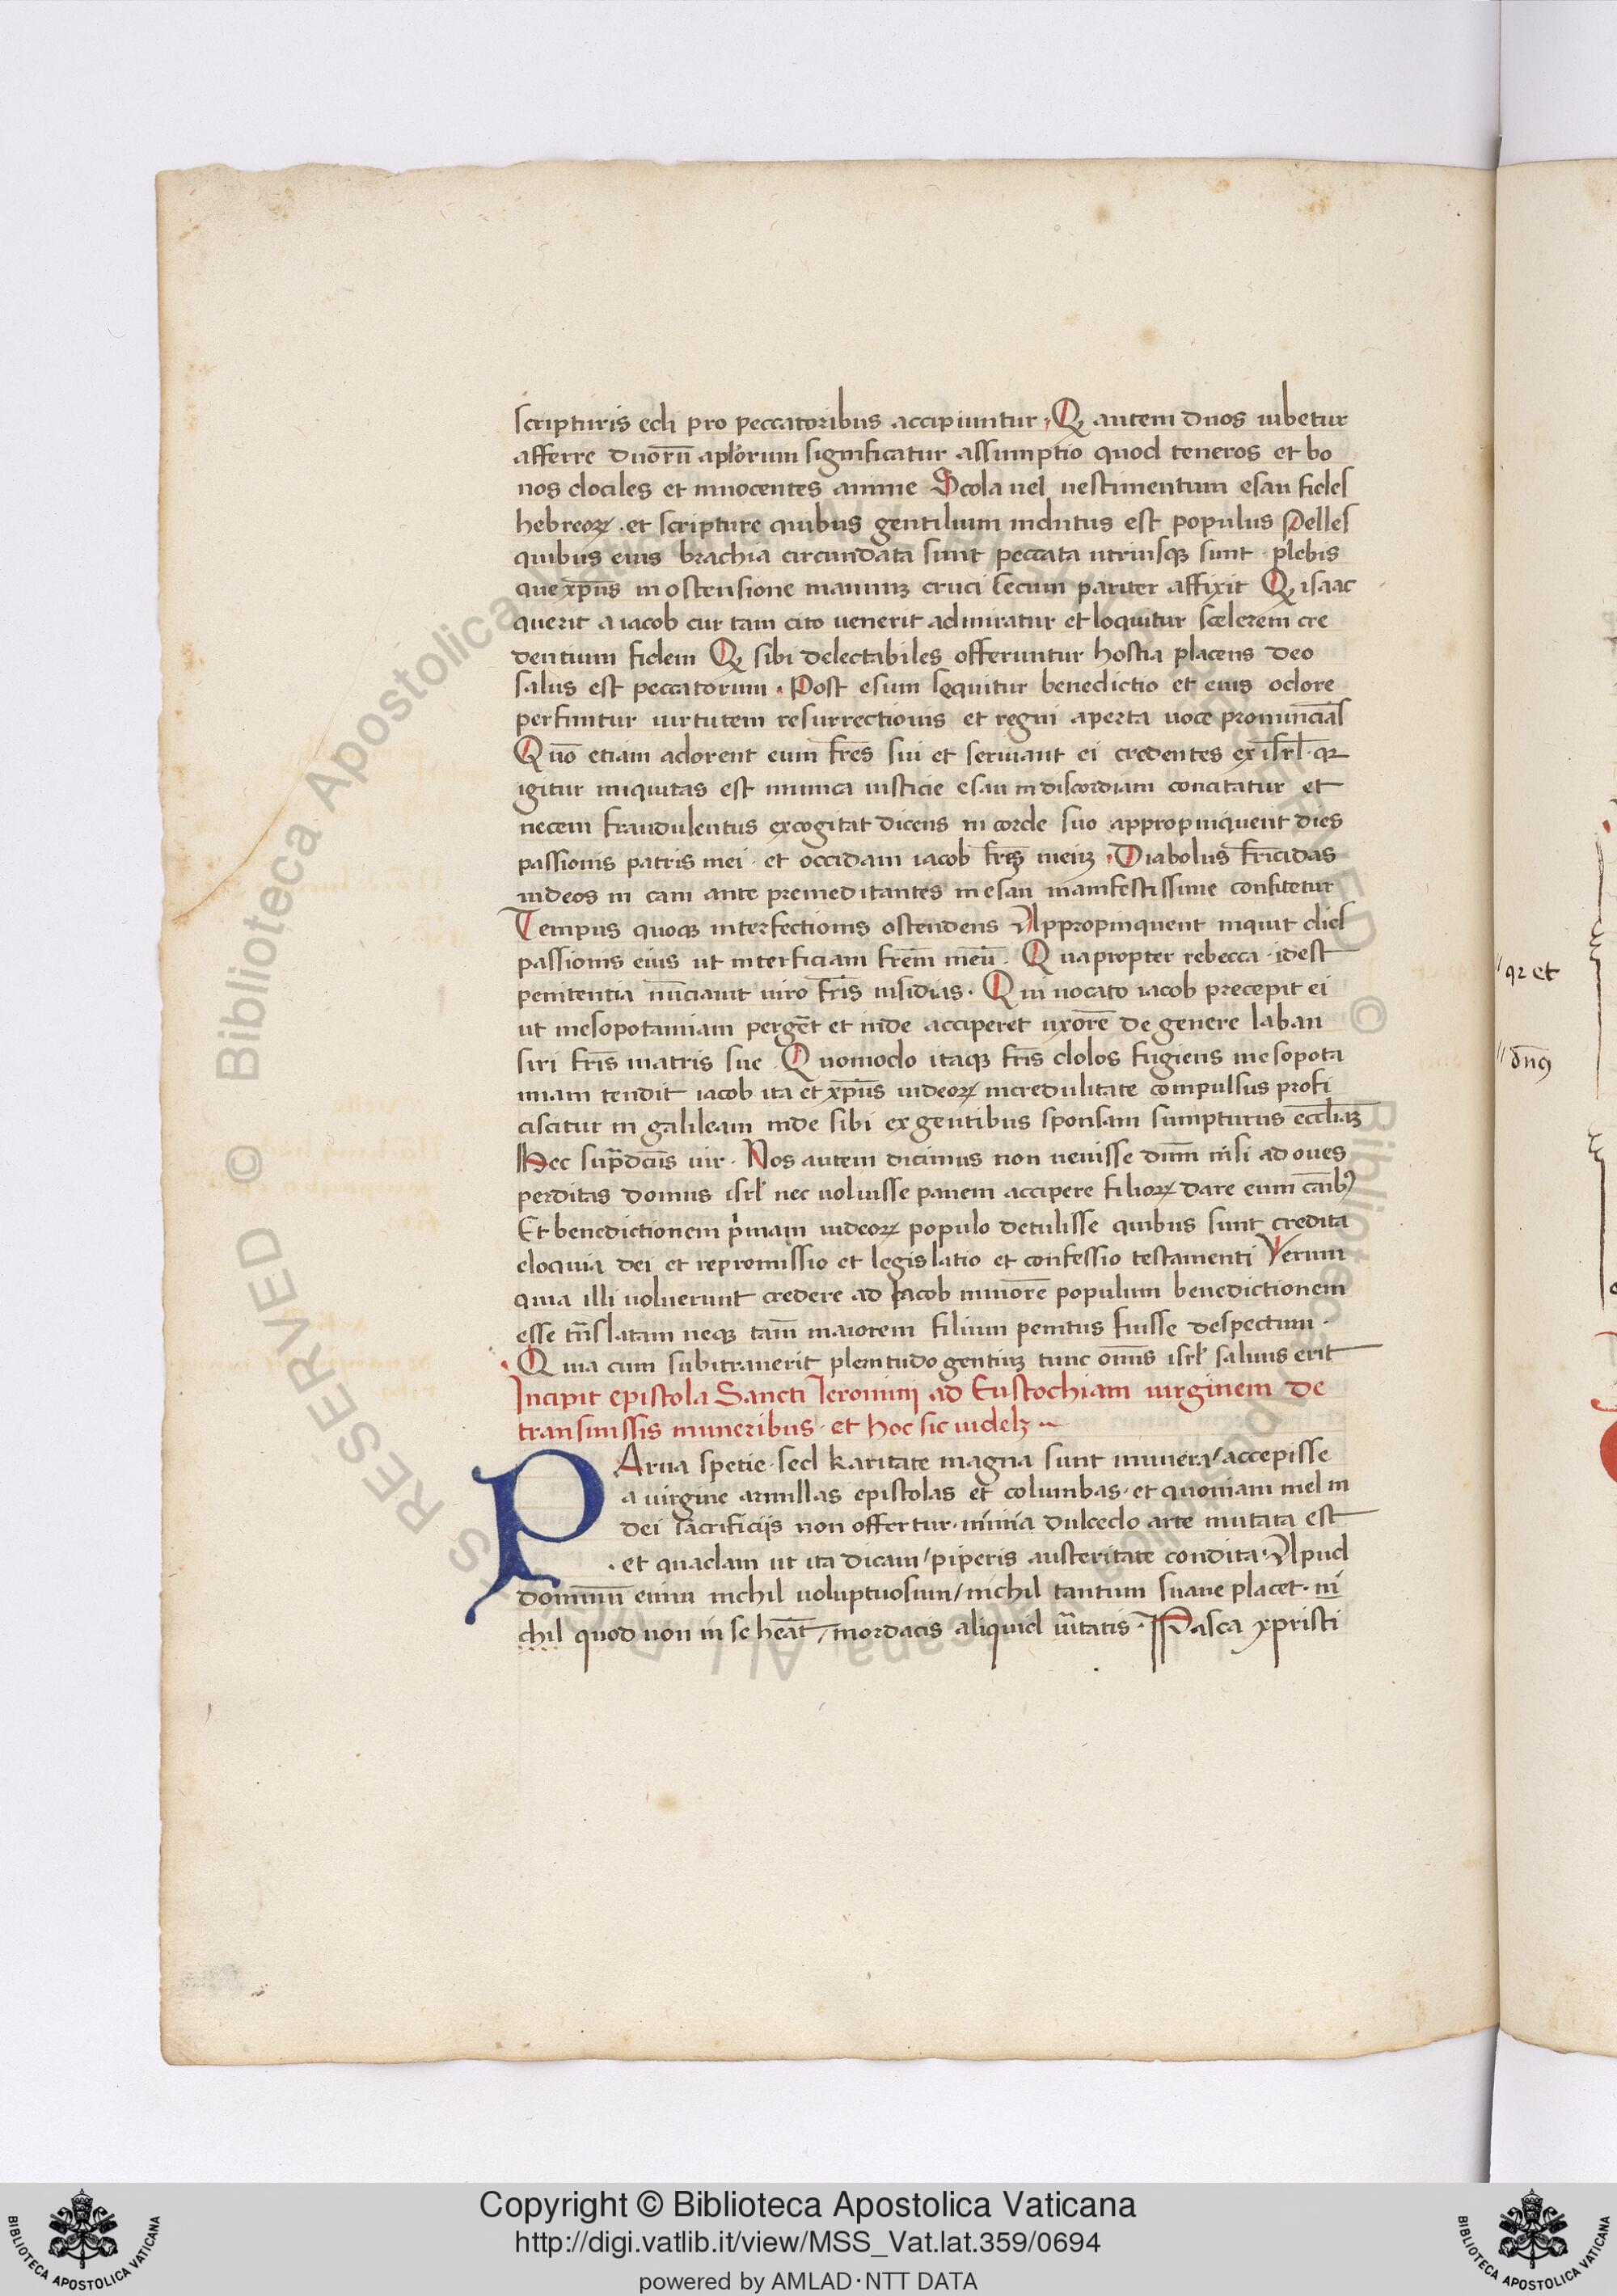 scripturis edi pro peccatoribus accipiuntur · Q̨ autem duos iubetur
afferre duorū aplorum significatur assumptio quod teneros et bo
nos dociles et innocentes anime Stola uel uestimentum esau fides
hebreoꝝ · et scripture quibus gentilium indutus est populus Pelles
quibus eius brachia circundata sunt peccata utriusqꝫ sunt · plebis
que xp̄us in ostensione manuuꝫ cruci secum pariter affixit Q̨ isaac
querit a iacob cur tam cito uenerit admiratur et loquitur scelerem cre
dentium fidem Q̨ sibi delectabiles offeruntur hostia placens deo
salus est peccatorum · Post esum sequitur benedictio et eius odore
perfruitur uirtutem resurrectionis et regni aperta uoce pronuncians
Quō etiam adorent eum fr̄es sui et seruiant ei credentes ex isrl̄ · qꝛ
igitur iniquitas est inimica iusticie esau in discordiam concitatur et
necem fraudulentus excogitat dicens in corde suo appropinquent dies
passionis patris mei · et occidam iacob fr̄eꝫ meuꝫ · Diabolus fr̄icidas
iudeos in cain ante premeditantes in esau manifestissime confitetur
Tempus quoqꝫ interfectionis ostendens Appropinquent inquit dies
passionis eius ut interficiam fr̄em meū · Quapropter rebecca · idest
penitentia nūciauit uiro fr̄is insidias · Qui uocato iacob precepit ei
ut mesopotamiam perḡet et inde acciperet uxorē de genere laban
siri fr̄is matris sue · Quomodo itaqꝫ fr̄is dolos fugiens mesopota
miam tendit iacob ita et xp̄us iudeoꝝ incredulitate compulsus profi
ciscitur in galileam inde sibi ex gentibus sponsam sumpturus eccl̄iaꝫ
Hec sup̄dc̄us uir · Nos autem dicimus non uenisse dn̄m nisi ad oues
perditas domus isrl̄ nec uoluisse panem accipere filioꝝ dare eum canibꝰ
Et benedictionem p̍mam iudeoꝝ populo detulisse quibus sunt credita
eloquia dei et repromissio et legislatio et confessio testamenti Verum
quia illi noluerunt credere ad Iacob minorē populum benedictionem
esse tn̄slatam neqꝫ tam̄ maiorem filium penitus fuisse despectum ·
· Quia cum subitrauerit plenitudo gentiuꝫ tunc omn̄s isrl̄ saluus erit
Incipit epistola Sancti Ieronimi ad Eustochiam uirginem de
transmissis muneribus · et hoc sic uidelꝫ
PArua spetie · sed karitate magna sunt munera / accepisse
a uirgine armillas epistolas et columbas · et quoniam mel in
dei sacrificijs non offertur · nimia dulcedo arte mutata est
· et quadam ut ita dicam / piperis austeritate condita · Apud
dominū enim nichil uoluptuosum / nichil tantum suaue placet · ni
chil quod non in se heāt / mordacis aliquid ūitatis · Pasca xpristi
"qꝛ et
"dn̄ꝰ
Copyright © Biblioteca Apostolica Vaticana
http://digi.vatlib.it/view/MSS_Vat.lat.359/0694
powered by AMLAD·NTT DATA
BIBLIOTECA APOSTOLICA VATICANA
BIBLIOTECA APOSTOLICA VATICANA